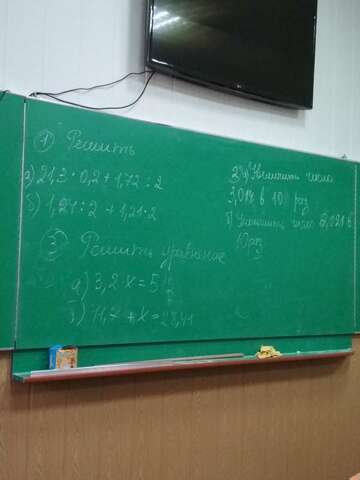 ① Решить
а) 21,3 · 0,2 + 1,72 : 2
б) 1,21 : 2 + 1,21 · 2
③ Решить уравнение
а) 3,2 · x = 5,
б) 11,7 + x = 23,41
2 а) Увеличить число
в 10 раз
б) Уменьшить число
10 раз